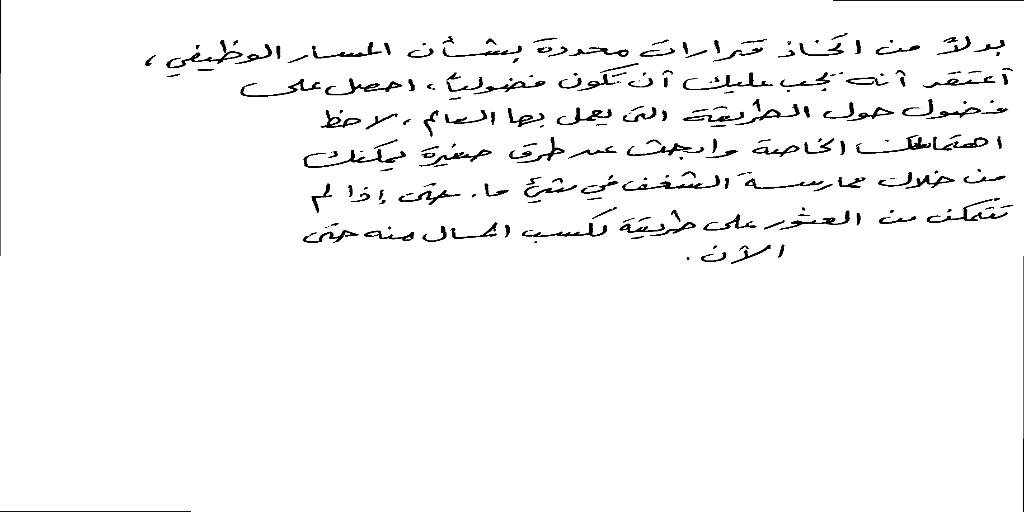 بدلاً من اتخاذ قرارات محددة بشأن المسار الوظيفي ،
أعتقد أنه يجب عليك أن تكون فضولياً ، احصل على
فضول حول الطريقة التي يعمل بها العالم ، لاحظ
اهتماماتك الخاصة وابحث عن طرق صغيرة يمكنك
من خلال ممارسة الشغف في شيئ ما . حتى إذا لم
تتمكن من العثور على طريقة لكسب المال منه حتى
الآن .